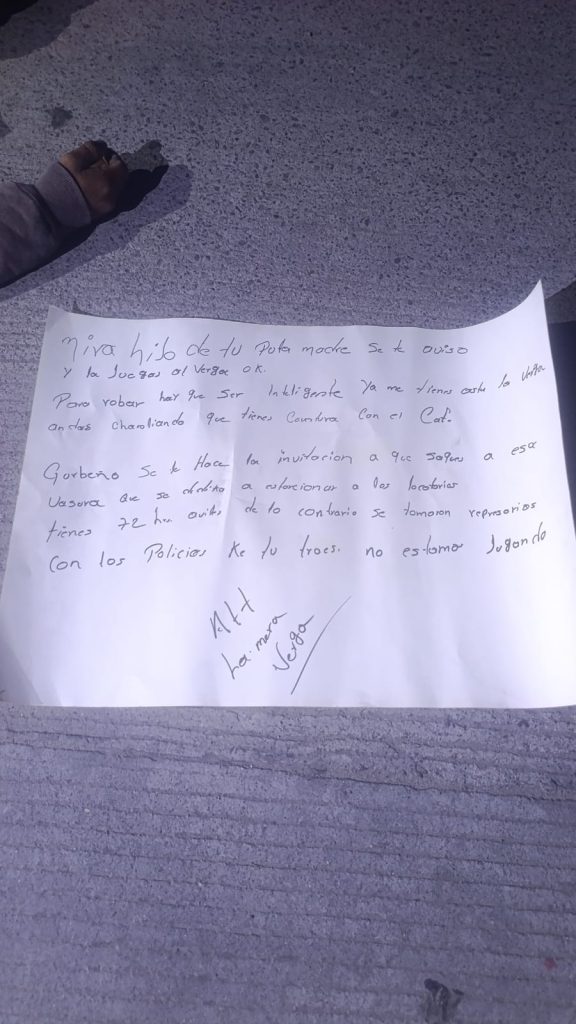 Mira hijo de tu Puta madre Se te aviso
y la Juegas al Verga OK.
Para robar hay que ser Inteligente Ya me tienes asta la Verga
andas charoliando que tienes Counbra Con el Caf.
Garbeño Se te Hace la invitacion a que saques a esa
vasura que se dedica a estorcionar a los locatarios
tienes 72 hrs de lo contrario se tomaran represarios
Con los Policias Ke tu traes. no estamos Jugando
Att
La mara
Verga